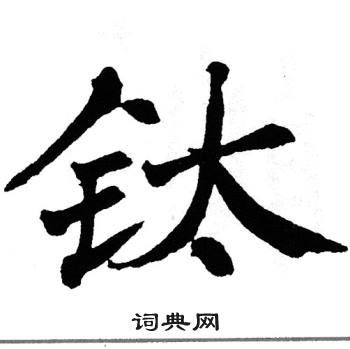 钛
词典网